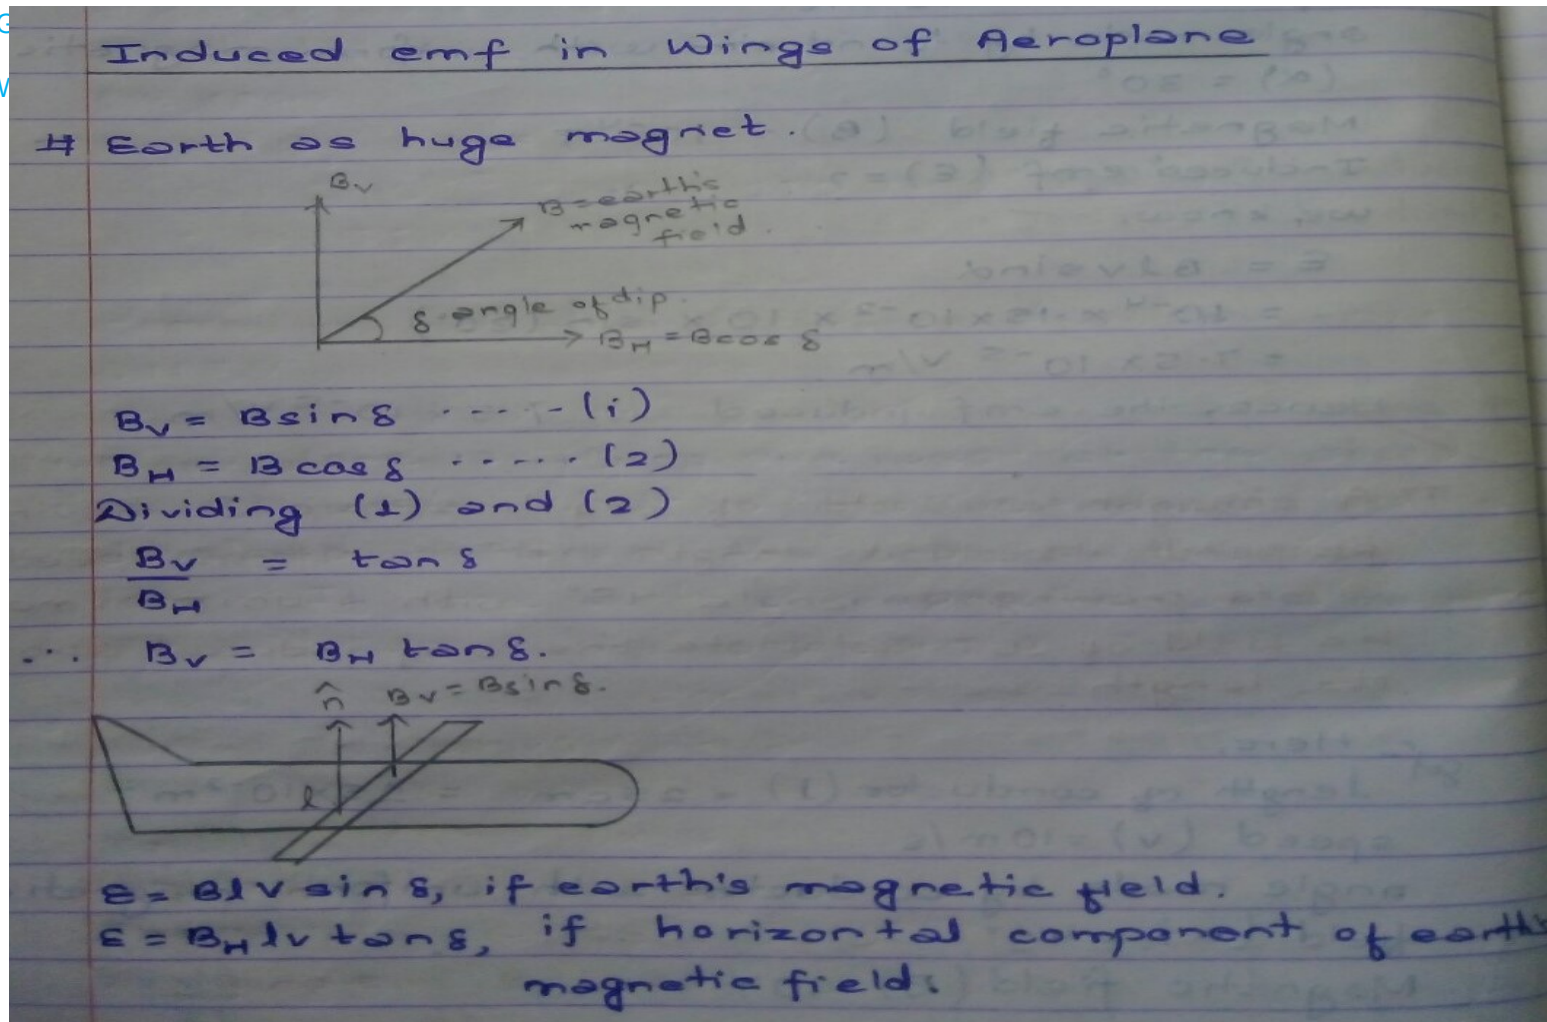 Induced emf in Wings of Aeroplane
# Earth as huge magnet.
Bv
B=earth's
magnetic
field.
δ angle of dip.
BH = Bcos δ
Bv = Bsinδ ..... (i)
BH = B cos δ ..... (2)
Dividing (1) and (2)
Bv = tan δ
BH
∴ Bv = BH tan δ.
n̂ Bv = Bsin δ.
l
ε = Blv sin δ, if earth's magnetic field.
ε = BH lv tan δ, if horizontal component of earth's
magnetic field.